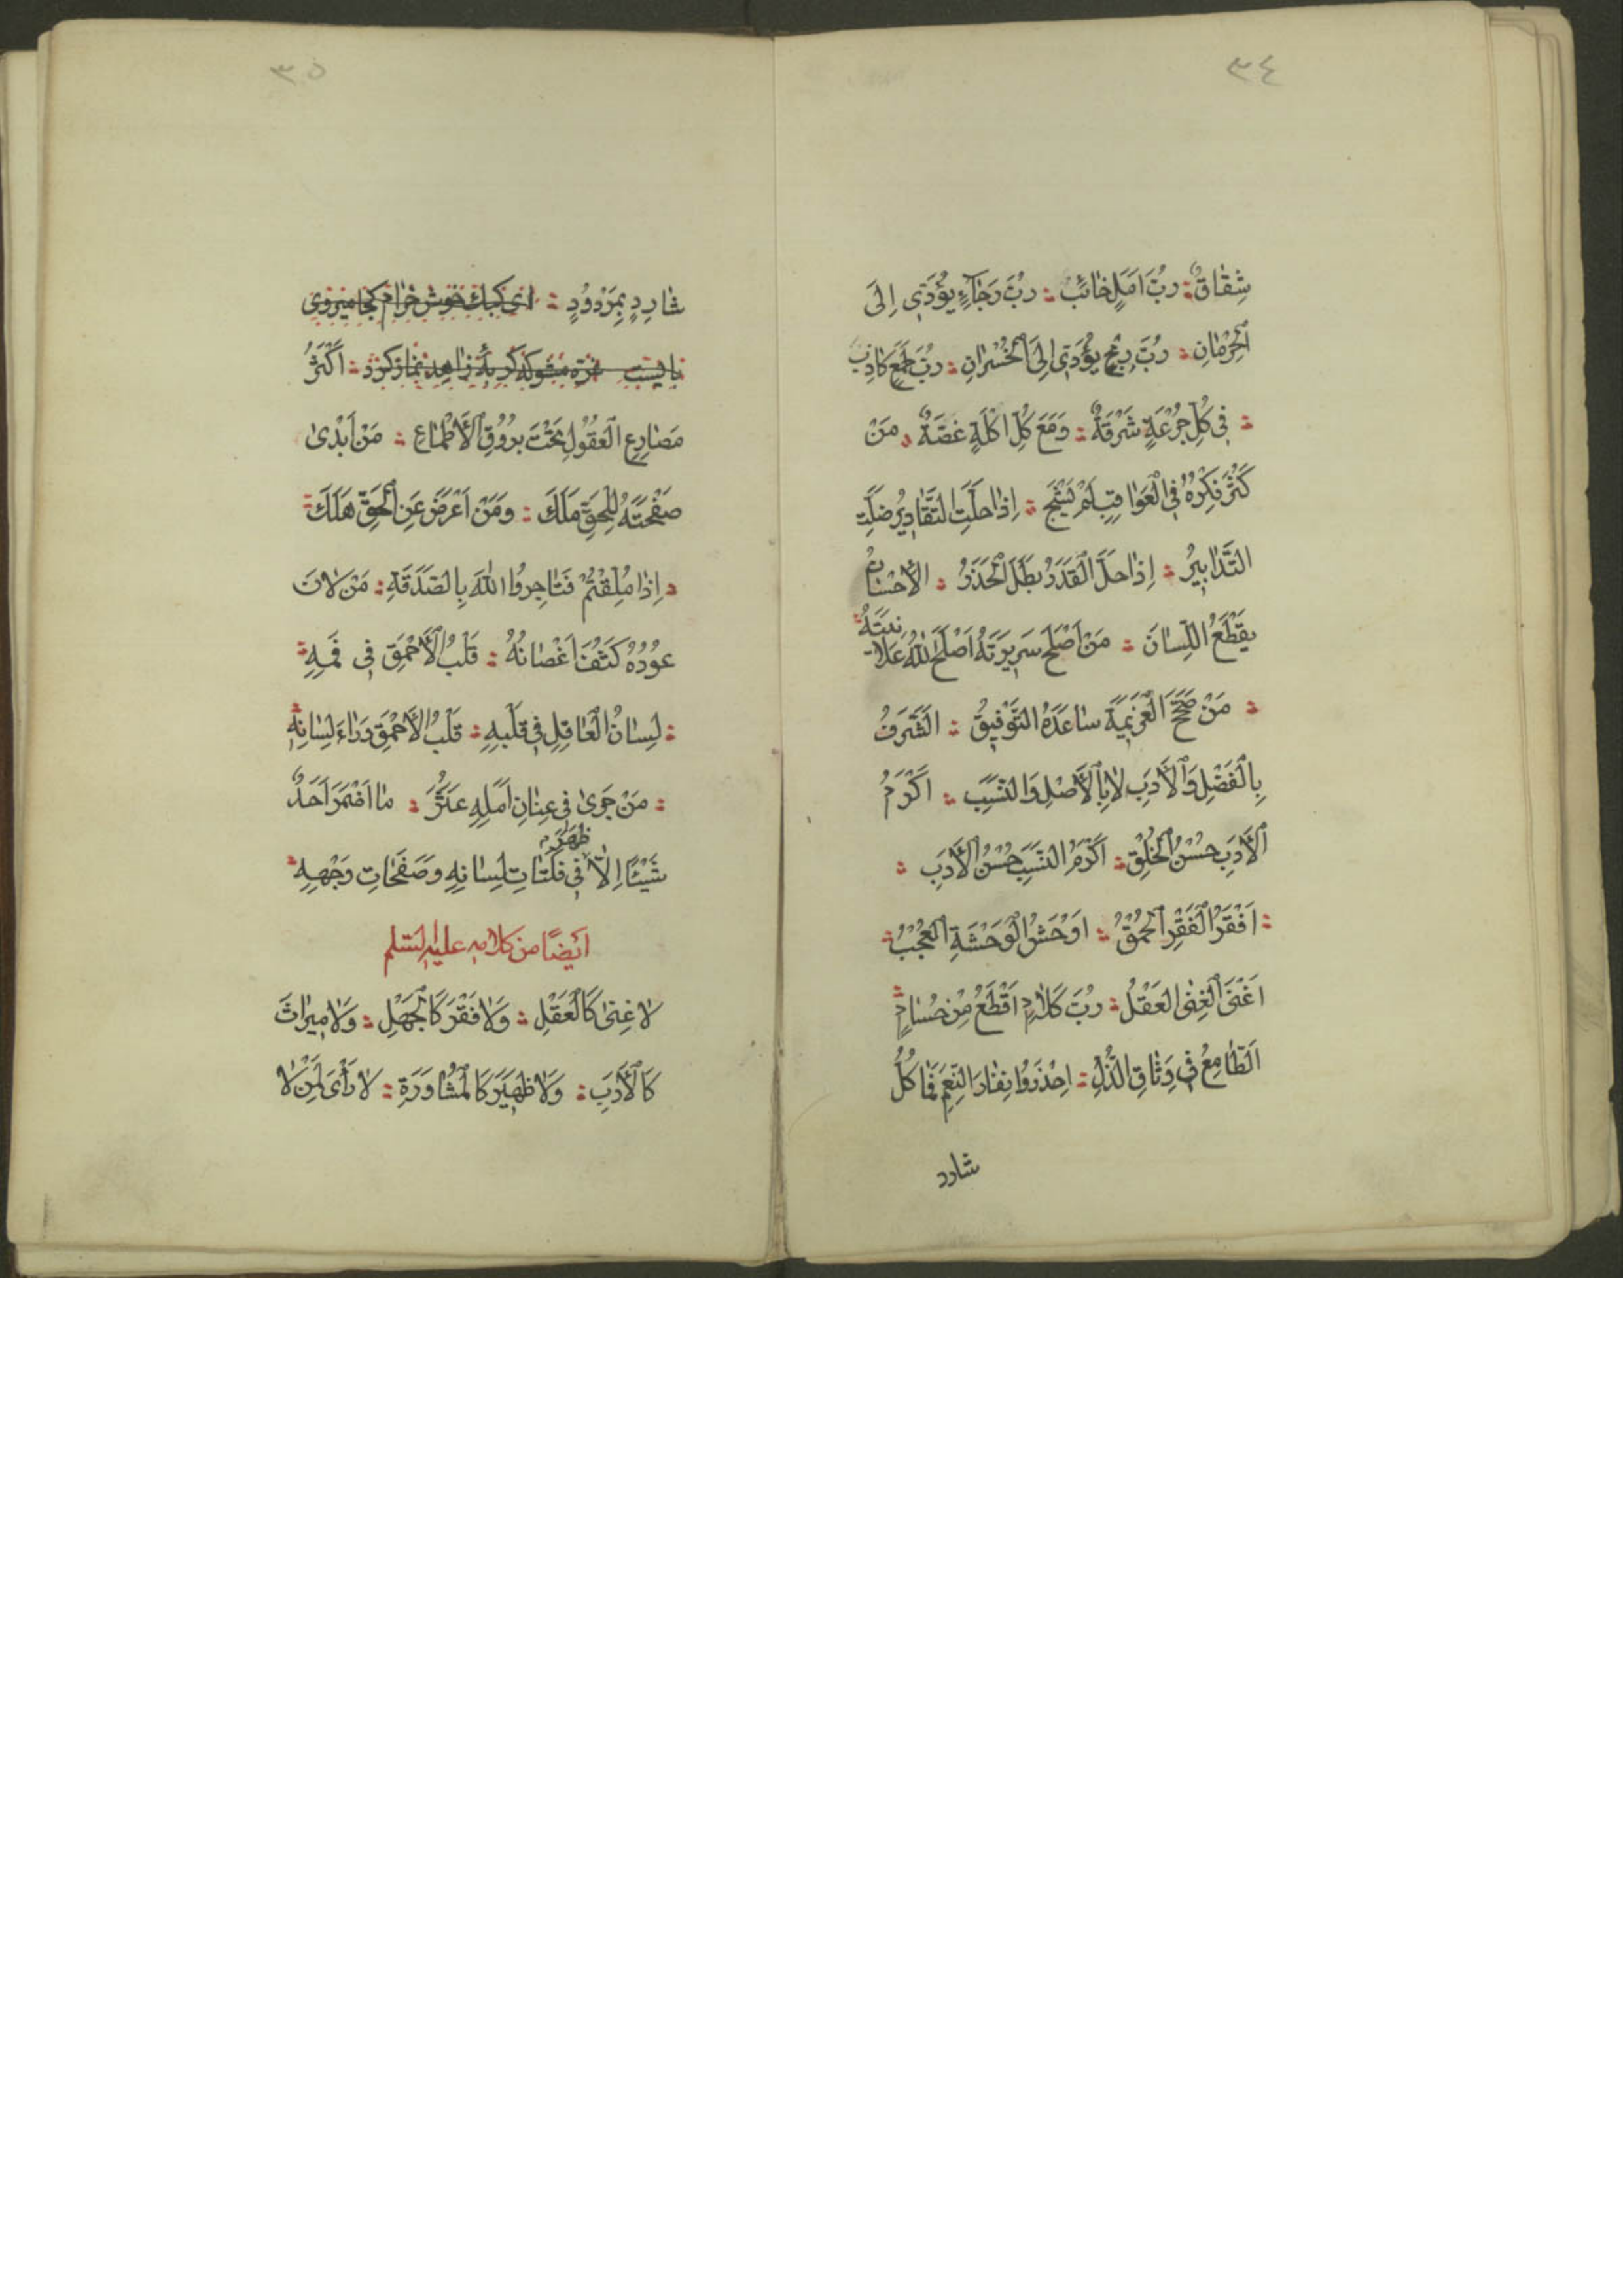 ٣٤
شِقٰاقٌ ؛ رُبَّ اَمَلٍ خٰائِبٌ ؛ رُبَّ رَجٰآءٍ يُؤَدّٖى اِلَى
الْحِرْمٰانِ ؛ رُبَّ رِبْحٍ يُؤَدّٖى اِلَى الْخُسْرٰانِ ؛ رُبَّ طَمَعٍ كٰاذِبٌ
؛ فٖى كُلِّ جُرْعَةٍ شَرْقَةٌ ؛ وَمَعَ كُلِّ اَكْلَةٍ غُصَّةٌ ؛ مَنْ
كَثُرَ فِكْرُهُ فِى الْعَوٰاقِبِ لَمْ يَشْجَعْ ؛ اِذٰا حَلَّتِ التَّقٰادٖيرُ ضَلَّتِ
التَّدٰابٖيرُ ؛ اِذٰا حَلَّ الْقَدَرُ بَطَلَ الْحَذَرُ ؛ الْاِحْسٰانُ
يَقْطَعُ اللِّسٰانَ ؛ مَنْ اَصْلَحَ سَرٖيرَتَهُ اَصْلَحَ اللّٰهُ عَلٰا-
نِيَتَهُ ؛
؛ مَنْ صَحَّحَ الْعَزٖيمَةَ سٰاعَدَهُ التَّوْفٖيقُ ؛ الشَّرَفُ
بِالْفَضْلِ وَالْاَدَبِ لٰا بِالْاَصْلِ وَالنَّسَبِ ؛ اَكْرَمُ
الْاَدَبِ حُسْنُ الْخُلْقِ ؛ اَكْرَمُ النَّسَبِ حُسْنُ الْاَدَبِ ؛
؛ اَفْقَرُ الْفَقْرِ الْحُمْقُ ؛ اَوْحَشُ الْوَحْشَةِ الْعُجْبُ ؛
اَغْنَى الْغِنَى الْعَقْلُ ؛ رُبَّ كَلٰامٍ اَقْطَعُ مِنْ حُسٰامٍ ؛
اَلطّٰامِعُ فٖى وِثٰاقِ الذُّلِّ ؛ اِحْذَرُوا نِفٰارَ النِّعَمِ فَمٰا كُلُّ
شارد
٣٥
شٰارِدٍ بِمَرْدُودٍ ؛ اى كبك خوش خرام كجا ميروى
بايست غره مشو كه كربه زاهد نماز كرد ؛ اَكْثَرُ
مَصٰارِعِ الْعُقُولِ تَحْتَ بُرُوقِ الْاَطْمٰاعِ ؛ مَنْ اَبْدىٰ
صَفْحَتَهُ لِلْحَقِّ مَلَكَ ؛ وَمَنْ اَعْرَضَ عَنِ الْحَقِّ هَلَكَ ؛
؛ اِذٰا مُلِقْتُمْ فَتٰاجِرُوا اللّٰهَ بِالصَّدَقَةِ ؛ مَنْ لٰانَ
عُودُهُ كَثُفَ اَغْصٰانُهُ ؛ قَلْبُ الْاَحْمَقِ فٖى فَمِهِ ؛
؛ لِسٰانُ الْعٰاقِلِ فٖى قَلْبِهِ ؛ قَلْبُ الْاَحْمَقِ وَرٰاءَ لِسٰانِهِ ؛
؛ مَنْ جَرىٰ فٖى عِنٰانِ اَمَلِهِ عَثَرَ ؛ مٰا اَضْمَرَ اَحَدٌ
ظَهَرَ
شَيْئًا اِلّٰا فٖى فَلَتٰاتِ لِسٰانِهِ وَصَفَحٰاتِ وَجْهِهِ ؛
اَيضًا من كلامه عليه السلم
لٰا غِنىٰ كَالْعَقْلِ ؛ وَلٰا فَقْرَ كَالْجَهْلِ ؛ وَلٰا مٖيرٰاثَ
كَالْاَدَبِ ؛ وَلٰا ظَهٖيرَ كَالْمُشٰاوَرَةِ ؛ لٰا رَأْىَ لِمَنْ لٰا